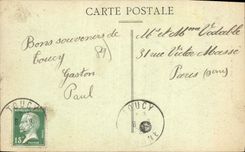 CARTE POSTALE
Bons souvenirs de
Toucy
Gaston
Paul
Mr et Mme
31 rue Victor Massé
Paris
TOUCY
TOUCY
15c